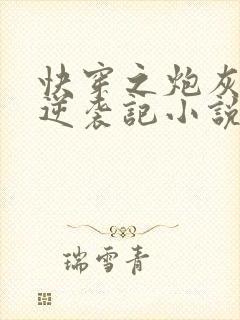 快穿之炮灰
逆袭記小説
瑞雪青